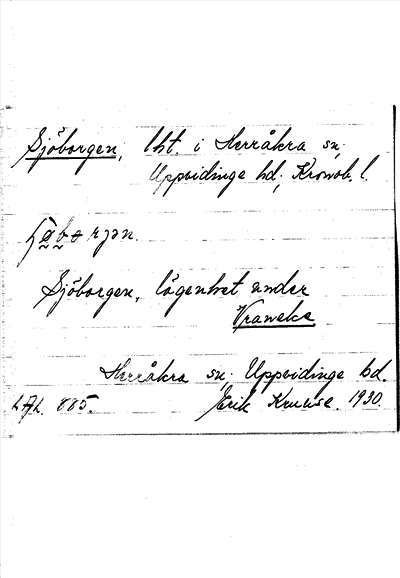 Sjöborgen, lht. i Herråkra sn,
Uppvidinge hd, Kronob. l.
Sjöborgen, lägenhet under
Vraneke
Herråkra sn, Uppvidinge hd.
885. Erik Kruuse. 1930.